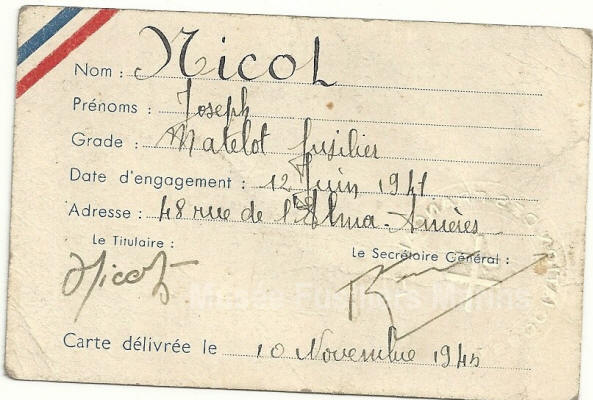 Nom : Nicol
Prénoms : Joseph
Grade : Matelot fusilier
Date d'engagement : 12 Juin 1941
Adresse : 48 rue de l'Alma - Asnières
Le Titulaire :
Le Secrétoire Général :
Nicol
Musée Fusiliers Marins
Carte délivrée le 10 Novembre 1945